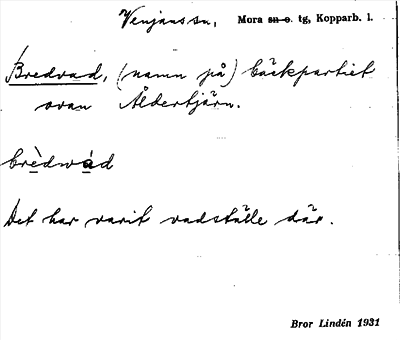 Venjans sn, Mora sn o. tg, Kopparb. l.
Bredvad, (namn på) bäckpartiet
ovan Åldertjärn.
brèdwád
Det har varit vadställe där.
Bror Lindén 1931